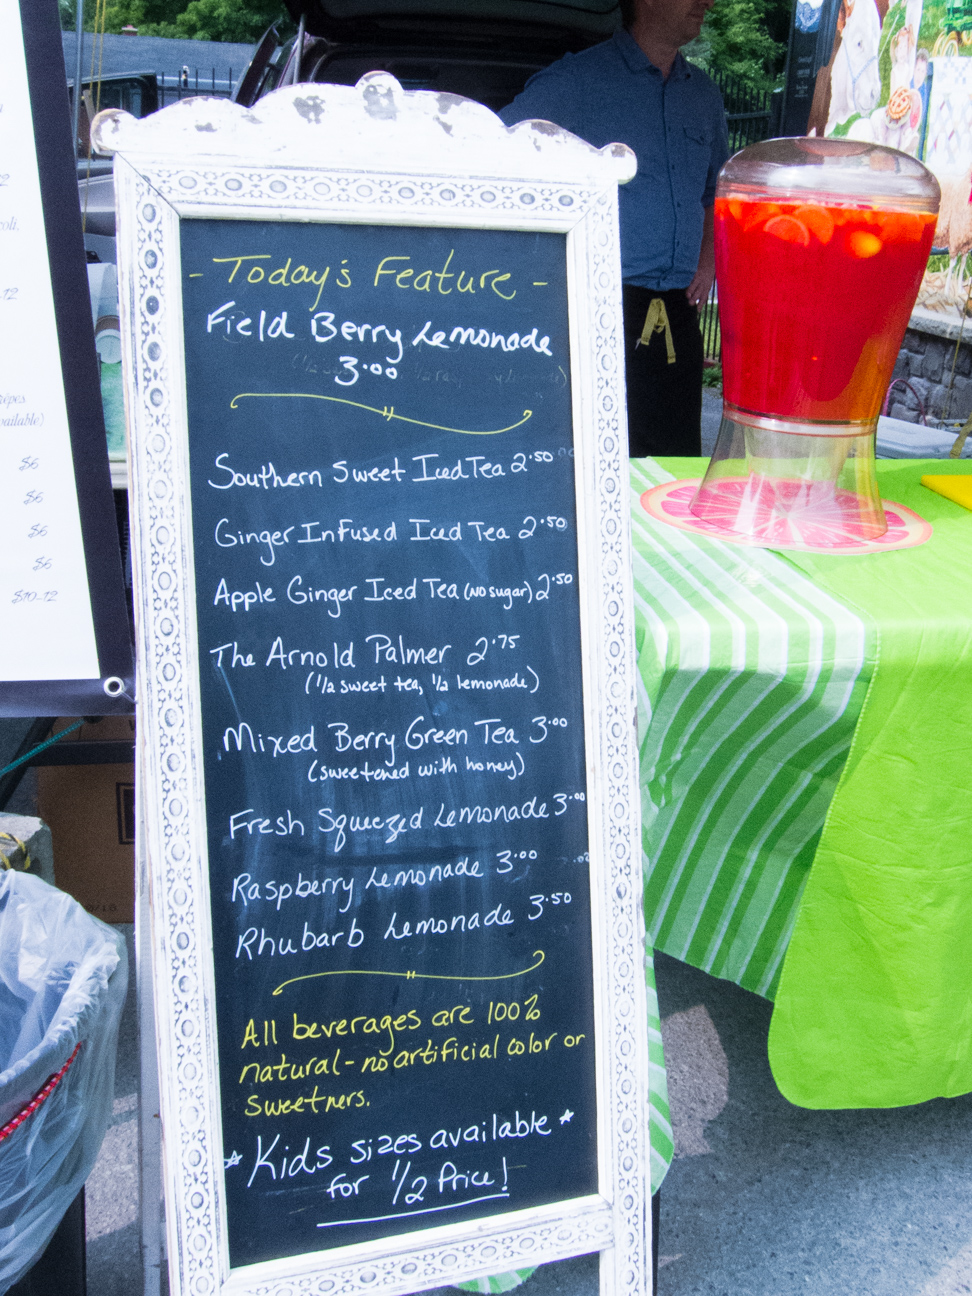 - Today's Feature -
Field Berry Lemonade
3.00
Southern Sweet Iced Tea 2.50
Ginger Infused Iced Tea 2.50
Apple Ginger Iced Tea (no sugar) 2.50
The Arnold Palmer 2.75
(1/2 sweet tea, 1/2 lemonade)
Mixed Berry Green Tea 3.00
(sweetened with honey)
Fresh Squeezed Lemonade 3.00
Raspberry Lemonade 3.00
Rhubarb Lemonade 3.50
All beverages are 100%
natural - no artificial color or
sweetners.
* Kids sizes available *
for 1/2 Price!
$6
$6
$6
$6
$10-12